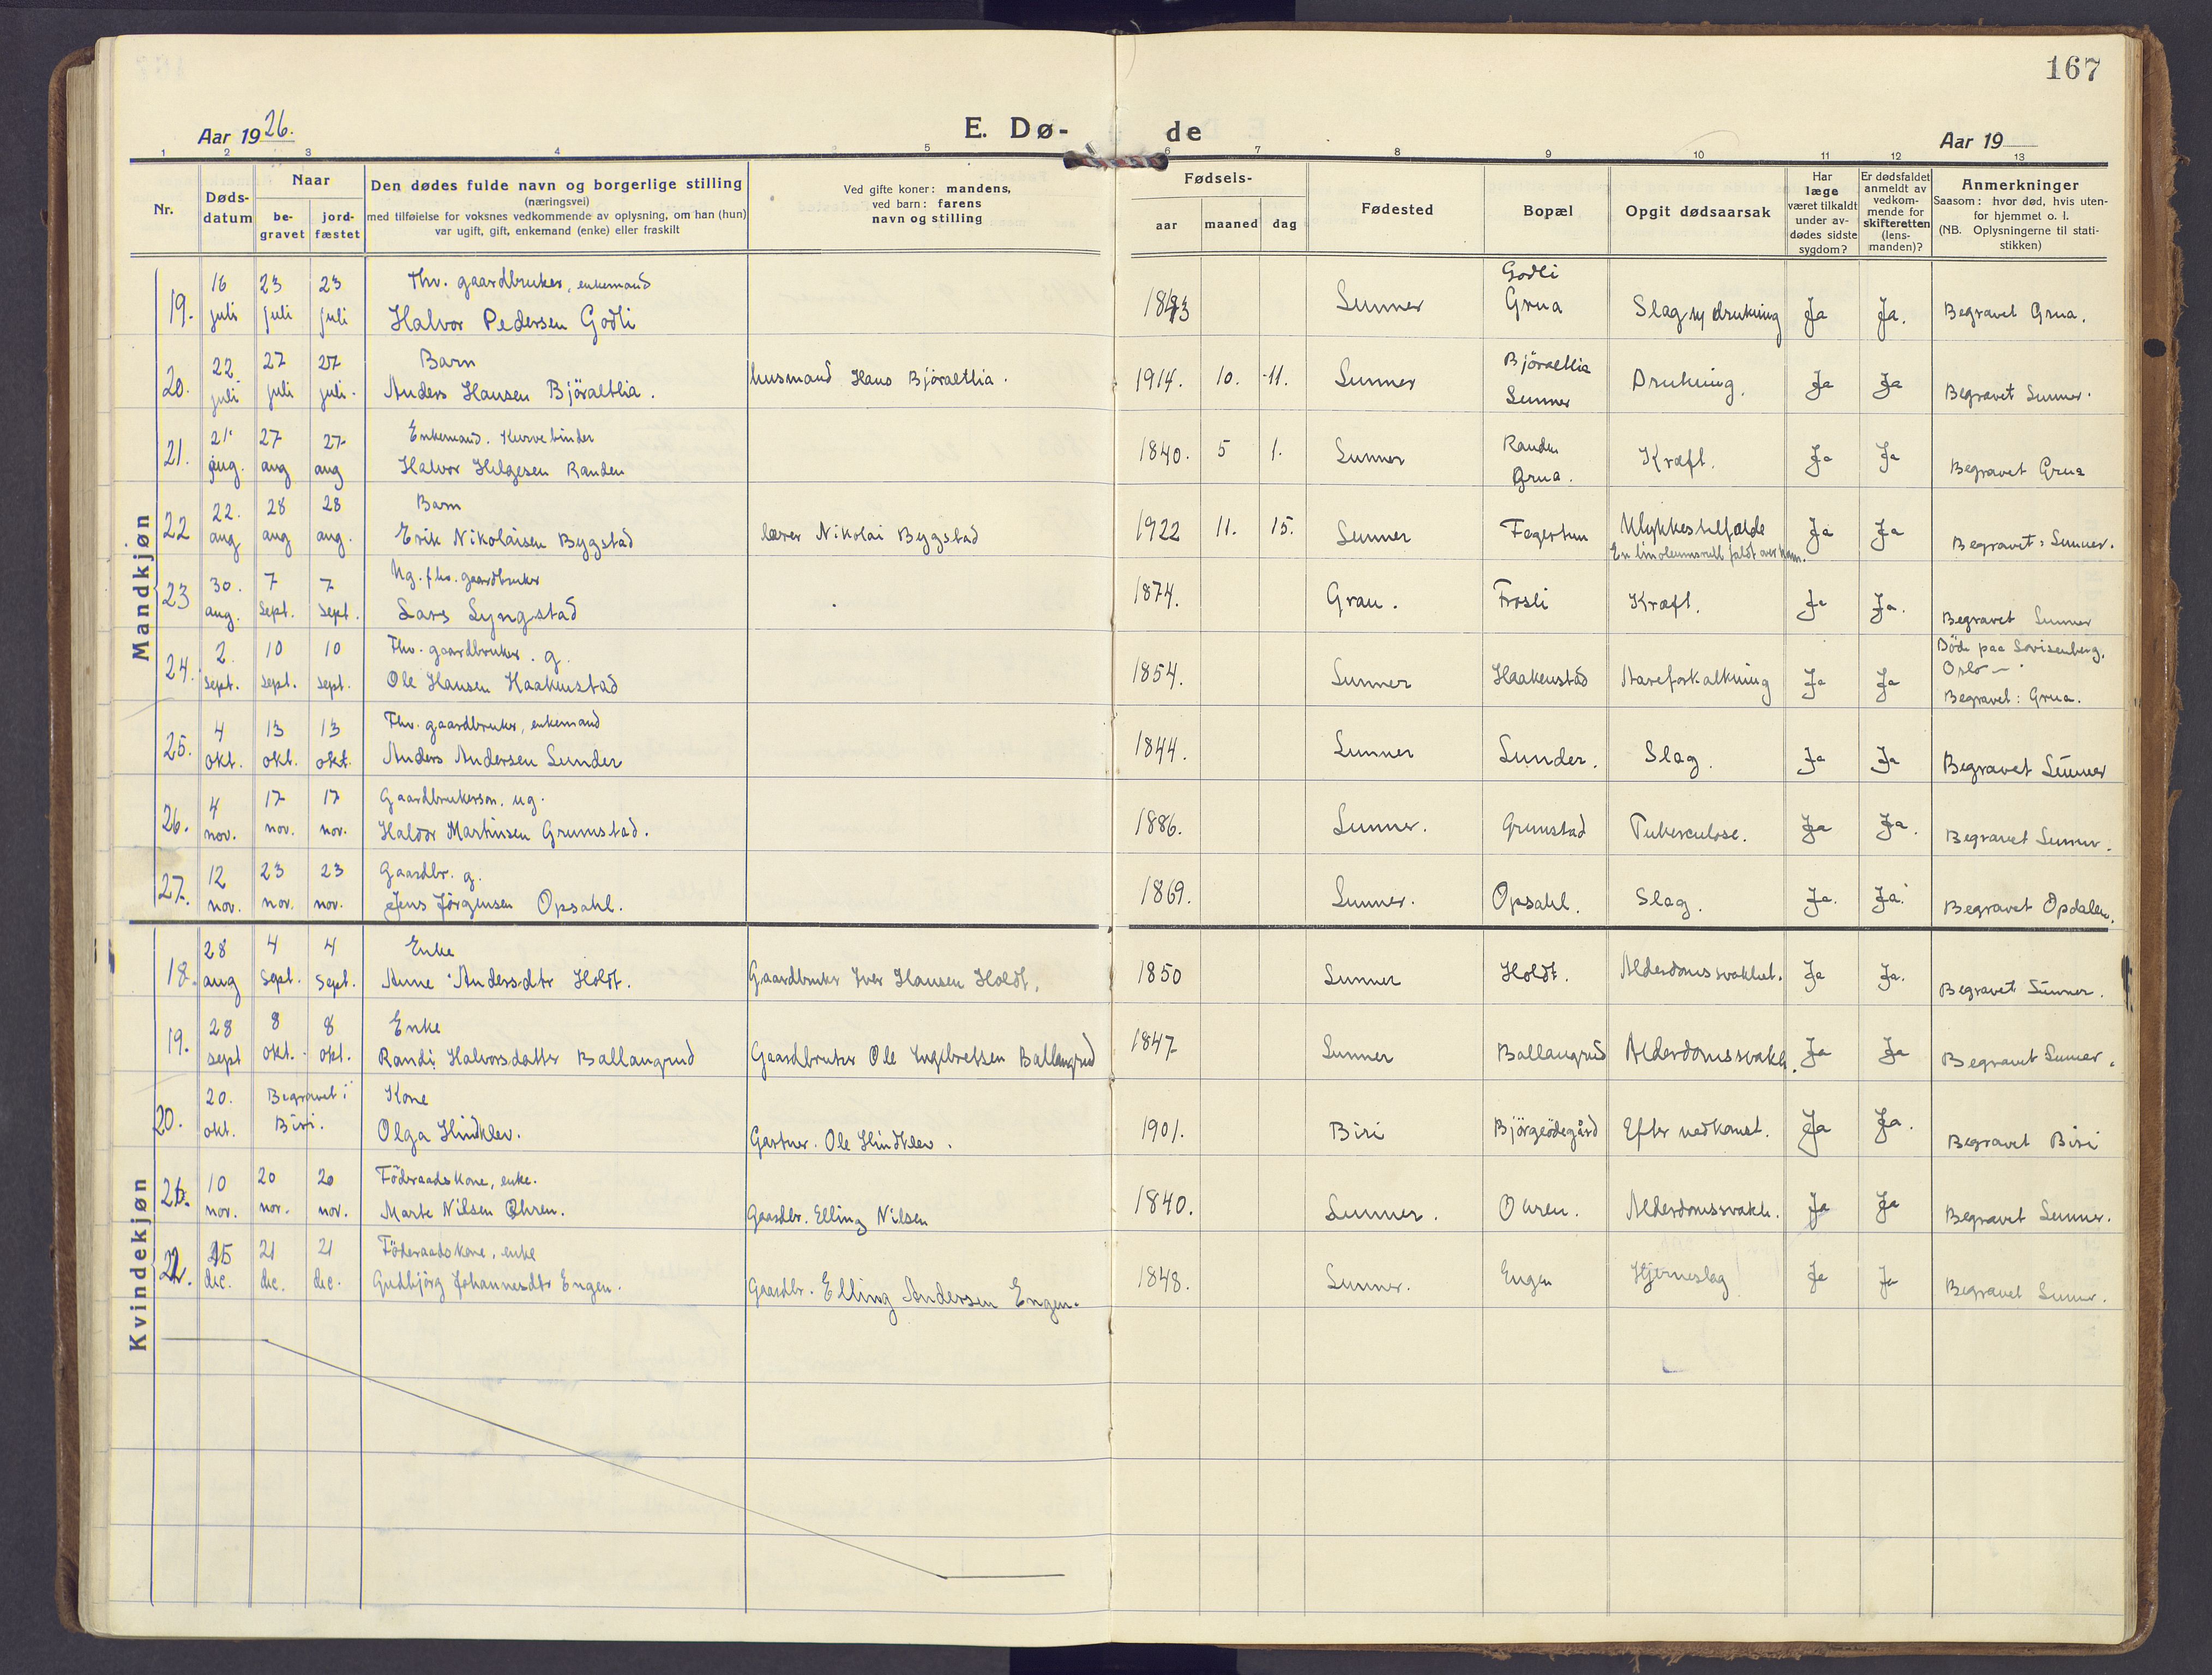 167
Aar 1926.
E. Dø-
de
Aar 19
1 2 3 4 5 6 7 8 9 10 11 12 13
Nr.
Døds-
datum
Naar
be-
gravet
jord-
fæstet
Den dødes fulde navn og borgerlige stilling
(næringsvei)
med tilføielse for voksnes vedkommende av oplysning, om han (hun)
var ugift, gift, enkemand (enke) eller fraskilt
Ved gifte koner: mandens,
ved barn: farens
navn og stilling
Fødsels-
aar
maaned
dag
Fødested
Bopæl
Opgit dødsaarsak
Har
læge
været tilkaldt
under av-
dødes sidste
sygdom?
Er dødsfaldet
anmeldt av
vedkom-
mende for
skifteretten
(lens-
manden)?
Anmerkninger
Saasom: hvor død, hvis uten-
for hjemmet o. l.
(NB. Oplysningerne til stati-
stikken)
Mandkjøn
19. 16 juli 23 juli 23 juli
Fhv. gaardbruker, enkemand
Halvor Pedersen Godli
1843 Lunner
Godli
Grua
Slag og drukning Ja Ja. Begravet Grua.
20. 22. juli 27 juli 27 juli.
Barn
Anders Hansen Björaltlia.
husmand Hans Björaltlia.
1914. 10. 11. Lunner
Björaltlia
Lunner
Drukning. Ja Ja Begravet Lunner.
21. 21. aug. 27 aug 27 aug
Enkemand. Kurvebinder
Halvor Helgesen Randen
1840. 5 1. Lunner
Randen
Grua.
Kræft. Ja Ja Begravet Grua
22 22. aug 28 aug 28 aug.
Barn
Erik Nikolaisen Byggstad
lærer Nikolai Byggstad
1922 11. 15. Lunner Fagertun
Ulykkestilfælde
En linoleumsrull faldt over ham.
Ja Ja Begravet: Lunner.
23 30. aug. 7 sept. 7 sept.
Ug. fhv. gaardbruker
Lars Lyngstad
1874. Gran. Frosli Kræft. Ja Ja. Begravet Lunner
24. 2. sept. 10 sept. 10 sept.
Fhv. gaardbruker. g.
Ole Hansen Haakenstad
1854. Lunner Haakenstad Aareforkalkning Ja Ja
Död paa Lovisenberg,
Oslo
Begravet: Grua.
25. 4 okt. 13 okt. 13 okt.
Fhv. gaardbruker, enkemand
Anders Andersen Lunder
1844. Lunner Lunder. Slag. Ja Ja Begravet Lunner
26. 4 nov. 17 nov. 17 nov.
Gaardbrukersøn. ug.
Haldor Martinsen Grumstad.
1886. Lunner. Grumstad Tuberculose. Ja Ja. Begravet Lunner.
27. 12 nov. 23 nov. 23 nov.
Gaardbr. g.
Jens Jörgensen Opsahl.
1869. Lunner. Opsahl. Slag. Ja. Ja. Begravet Opdalen.
Kvindekjøn
18. 28 aug 4 Sept. 4 Sept.
Enke
Anne Andersdtr Holdt.
Gaardbruker Iver Hansen Holdt.
1850 Lunner Holdt. Alderdomssvakhet. Ja Ja. Begravet Lunner.
19. 28 sept 8 okt. 8 okt.
Enke
Randi Halvorsdatter Ballangrud
Gaardbruker Ole Engebretsen Ballangrud
1847 Lunner Ballangrud Alderdomssvakh. Ja Ja Begravet Lunner.
20. 20. okt. Begravet i
Biri.
Kone
Olga Hindklev.
Gartner. Ole Hindklev.
1901. Biri Björgeödegård Efter nedkomst. Ja Ja. Begravet Biri
21. 10 nov. 20 nov. 20 nov.
Föderaadskone, enke.
Marte Nilsen Ohren.
Gaardbr. Elling Nilsen
1840. Lunner. Ohren. Alderdomssvakh. Ja Ja Begravet Lunner.
22. 15 dec. 21 dec. 21 dec.
Föderaadskone, enke
Gudbjörg Johannesdtr Engen.
Gaardbr. Elling Andersen Engen.
1848. Lunner. Engen Hjerneslag Ja Ja Begravet Lunner.